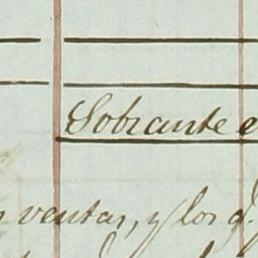 Sobrante e
ventas, y los q.